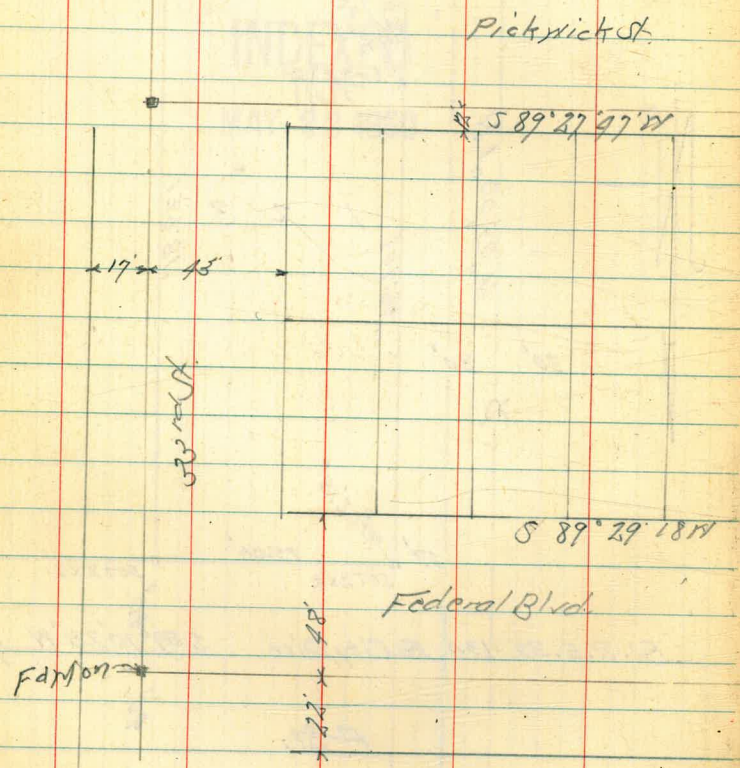 Pickwick St.
S 89° 27' 47" W
17' 45'
33 rd St.
S 89° 29' 18 W
Federal Blvd.
48'
Fd Mon
22'